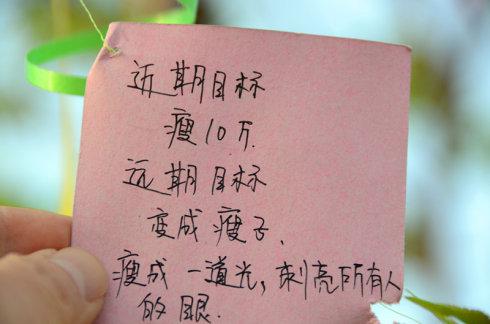 近期目标
瘦10斤.
远期目标
变成瘦子、
瘦成一道光,刺亮所有人
的眼.